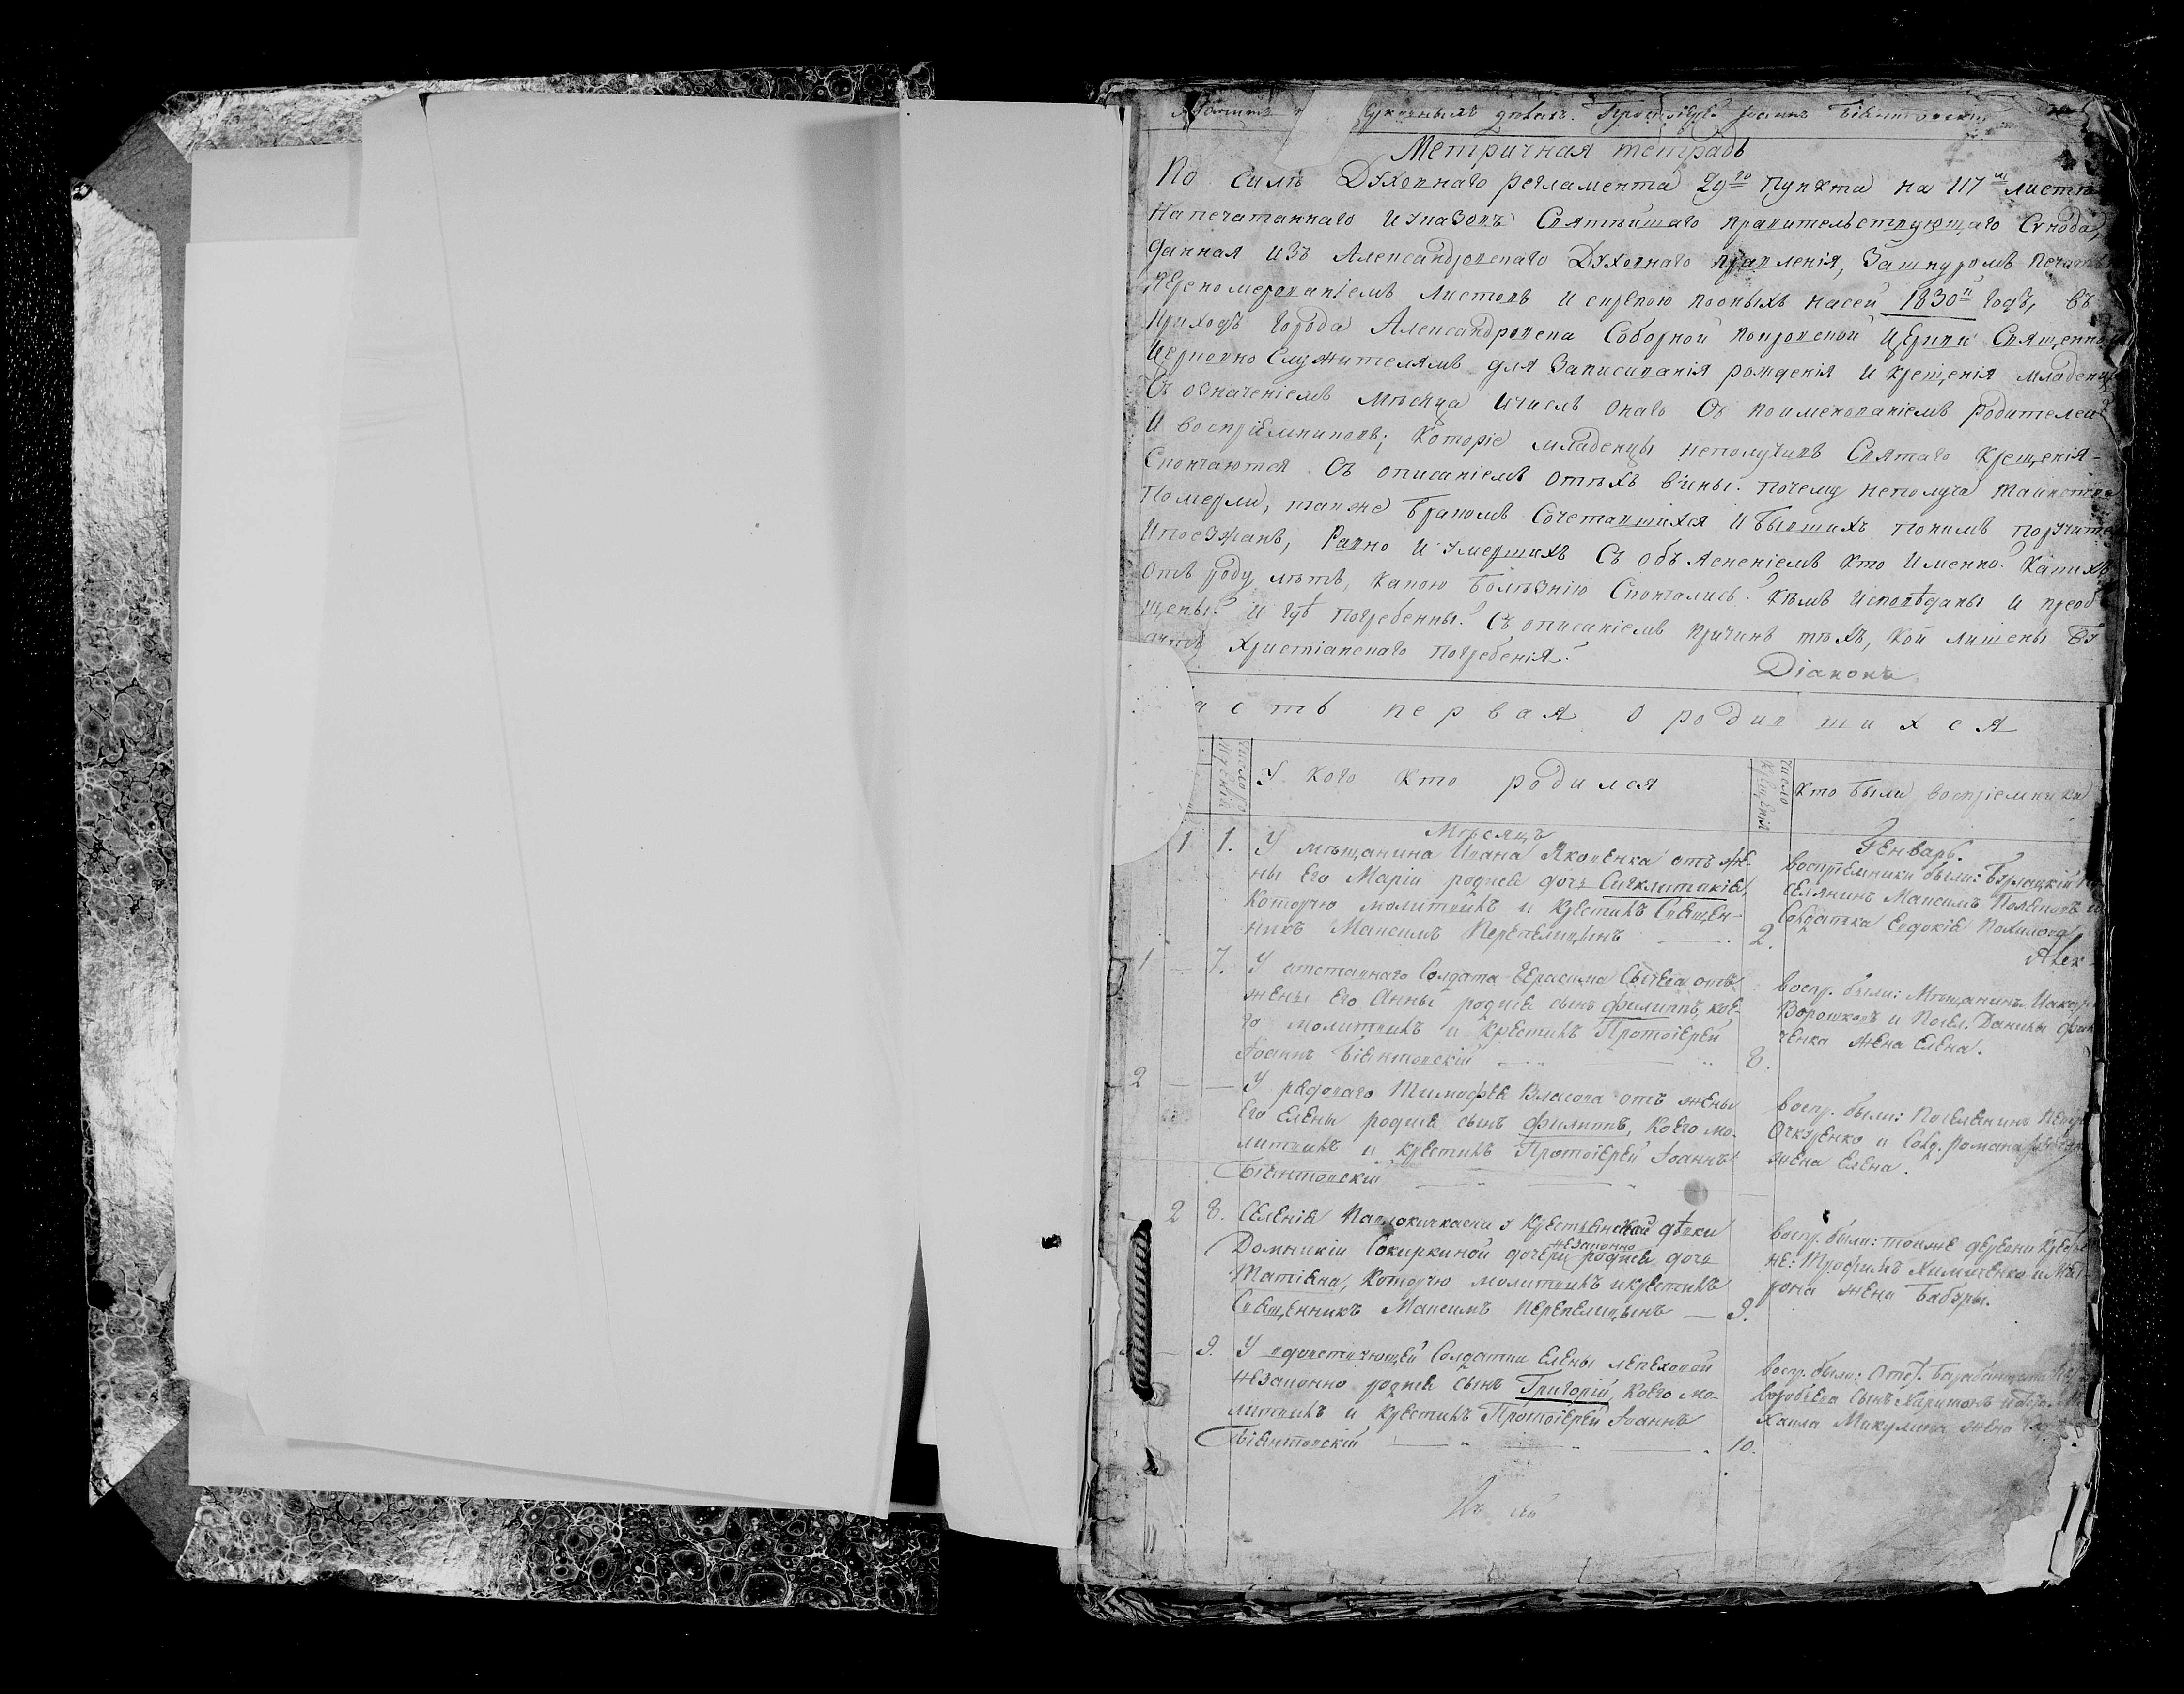 духовныхъ делахъ. Протоіерей Іоаннъ Бѣвитовскій
Метричная тетрадь
По силѣ Духовнаго регламента 29го пункта на 117м листѣ
напечатаннаго и указовъ Святѣйшаго правительствующаго Сѵнода,
данная изъ Александровскаго Духовнаго правленія, зашнуромъ печатью
переномерованіемъ листовъ и скрѣпою пооныхъ насей 1830й годъ, въ
приходъ города Александровска Соборной покровской церкви Священно
церковно служителямъ для записиванія рожденія и крещенія младенцевъ
Съ означеніемъ мѣсяца ичислъ онаго Съ поименованіемъ родителей
и воспріемниковъ; Которіе младенцы неполучивъ Святаго крещенія-
скончаются Съ описаніемъ отѣхъ вины. почему неполуча таинства
померли, также бракомъ Сочетавшихся и бывшихъ покимъ поручите
ипоезжанъ, Равно и умершихъ Съ объясненіемъ кто именно? Какихъ
отъ роду лѣтъ, какою болѣзнію Скончались? кѣмъ исповѣданы и преоб
щены? и гдѣ погребенны? Съ описаніемъ причинъ тѣхъ, кои лишены бу
дутъ христіанскаго погребенія?
Діаконъ
асть первая о родившихся
Число рожденій
У кого кто родился
Число крещеній
Кто были воспріемники
Мѣсяцъ
Генварь.
1 1. У мѣщанина Ивана Яковенка отъ же-
ны Его Маріи родися дочь Сигклитикія,
Которую молитвилъ и крестилъ Священ-
никъ Максимъ Перепелицынъ 2.
воспріемники были: Бурлацкій по
селянинъ Максимъ Полевикъ и
Солдатка Евдокія Похилова
1 7. У отставнаго Солдата Герасима Сычева отъ
жены Его Анны родися сынъ Филиппъ, кое-
го молитвилъ и крестилъ Протоіерей
Іоаннъ Бѣвитовскій 8.
воспр. были: Мѣщанинъ Иаковъ
Ворошковъ и Посел. Данилы
ченка жена Елена.
2 — — У рядоваго Тимофея Власова отъ жены
Его Елены родися сынъ Филиппъ, Коего мо-
литвилъ и крестилъ Протоіерей Іоаннъ
Бѣвитовскій —
воспр. были: Поселянинъ Петръ
Очкуренко и Солд. Романа
жена Елена.
2 8. Селенія Павлокичкаски у крестьянской дѣвки
Домникіи Сокиркиной дочери незаконно родися дочь
Татіяна, Которую молитвилъ икрестилъ
Священникъ Максимъ Перепелицынъ — 9.
воспр. были: тоижъ деревни крестья
не: Трофимъ Химиченко и Мат
рона жена Бабуры.
— 9. У вдовствующей Солдатки Елены Лепеховой
незаконно родися сынъ Григорій, коего мо-
литвилъ и крестилъ Протоіерей Іоаннъ
Бѣвитовскій 10.
воспр. были: отст. барабанщика
Воробьева сынъ Харитонъ
хаила Микулина жена